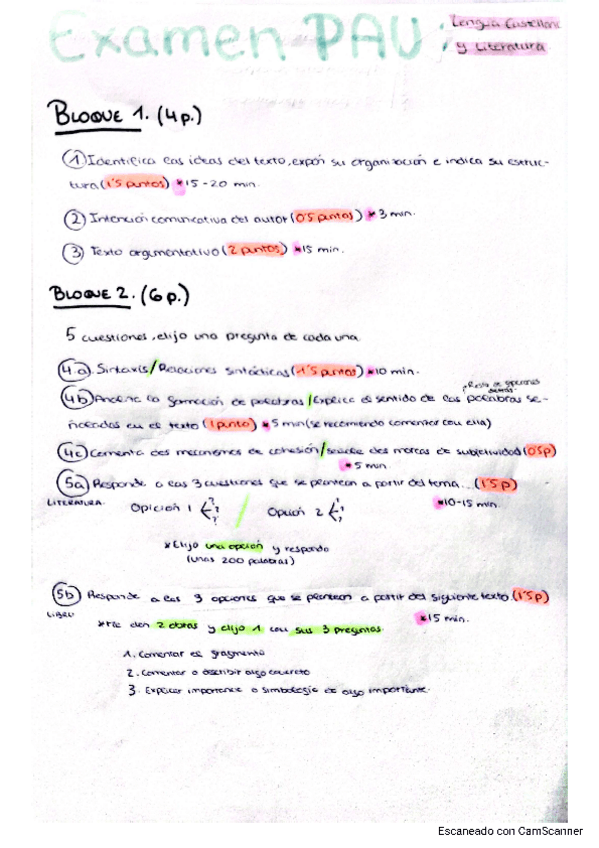 Examen PAU:
Lengua Castellana
y Literatura
BLOQUE 1. (4p.)
① Identifica las ideas del texto, expón su organización e indica su estruc-
tura (1'5 puntos) * 15-20 min.
② Intención comunicativa del autor (0'5 puntos) * 3 min.
③ Texto argumentativo (2 puntos) * 15 min.
BLOQUE 2. (6p.)
5 cuestiones, elijo una pregunta de cada una
4a. Sintaxis / Relaciones sintácticas (1'5 puntos) * 10 min.
4b) Analiza la formación de palabras / Explica el sentido de las palabras se-
ñaladas en el texto (1 punto) * 5 min (se recomienda comentar con ella)
4c) Comenta los mecanismos de cohesión / señale las marcas de subjetividad (0'5p)
* 5 min.
5a) Responde a las 3 cuestiones que se plantean a partir del tema... (1'5 p)
LITERATURA. Opición 1 ? ? ? / Opción 2 ? ? ? * 10-15 min.
* Elijo una opción y respondo
(unas 200 palabras)
5b) Responde a las 3 opciones que se plantean a partir del siguiente texto (1'5p)
LIBRO * Me dan 2 obras y elijo 1 con sus 3 preguntas. * 15 min.
1. Comentar el fragmento
2. Comentar o describir algo concreto
3. Explicar importancia o simbología de algo importante.
Escaneado con CamScanner